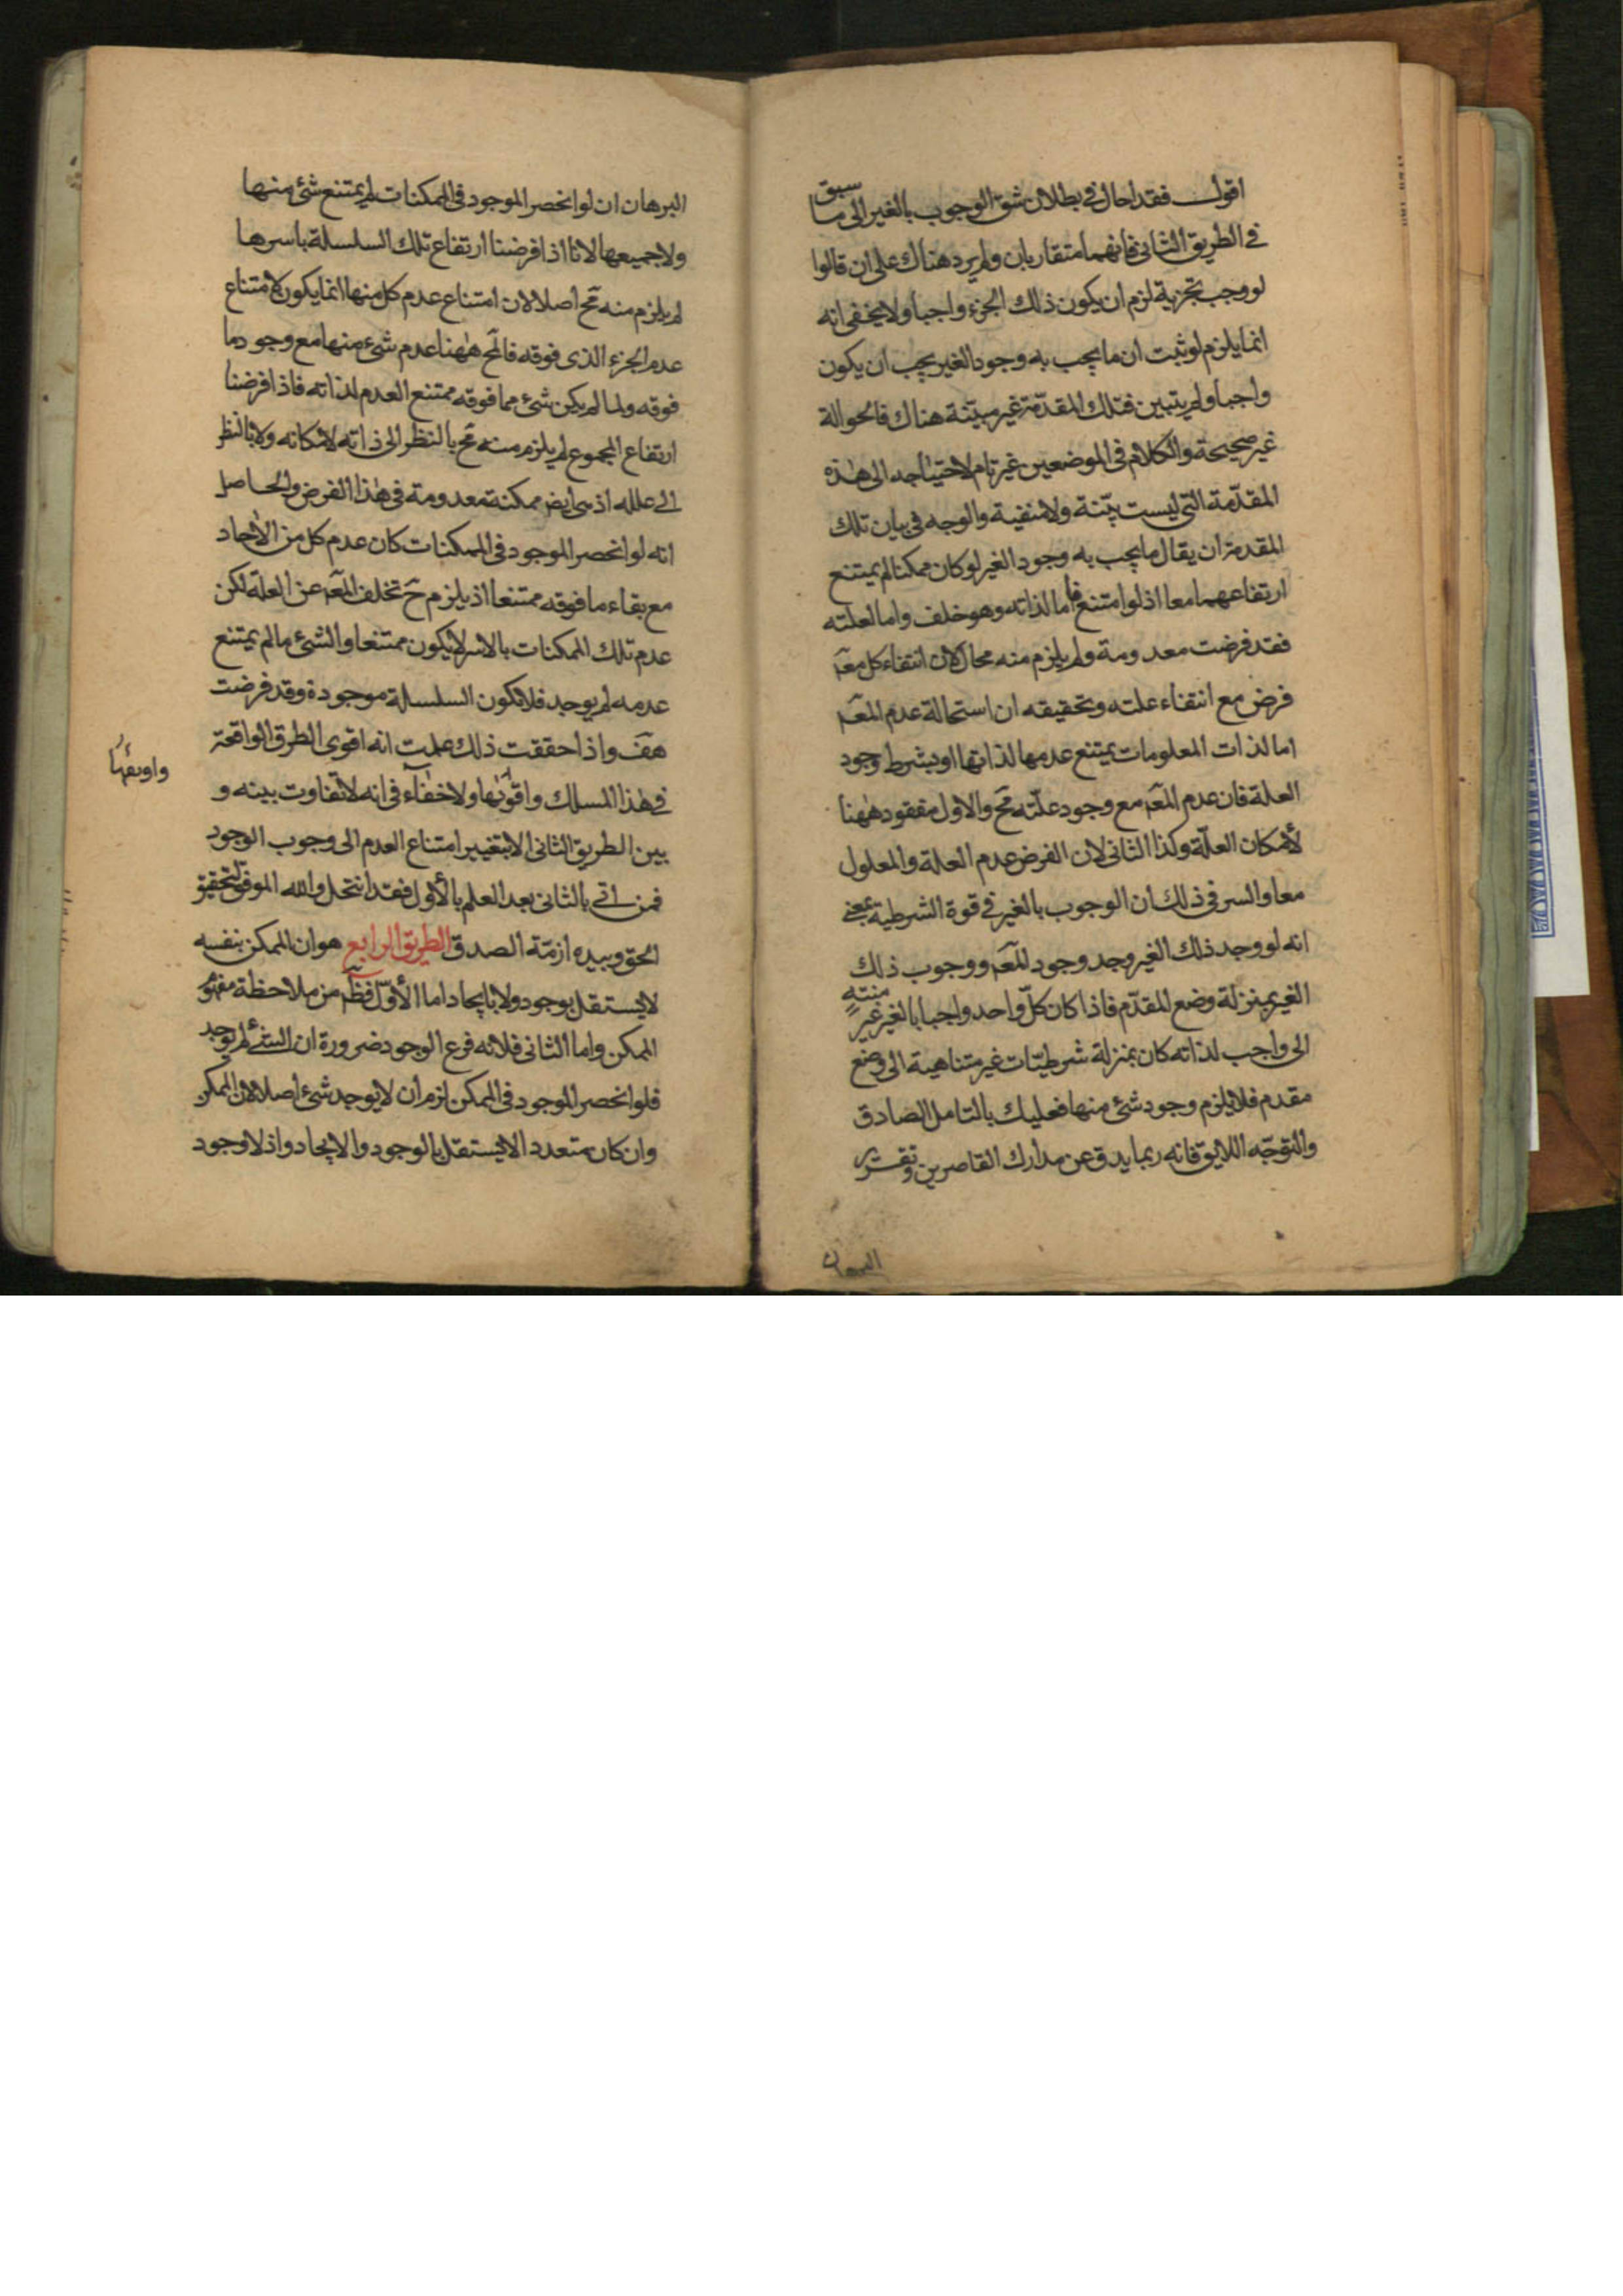 اقول فقد احال في بطلان شق الوجوب بالغير الى ما سبق
في الطريق الثاني فانهما متقاربان ولم يرد هناك على ان قالوا
لو وجب بجزئية لزم ان يكون ذلك الجزء واجبا ولا يخفى انه
انما يلزم لو ثبت ان ما يجب به وجود الغير يجب ان يكون
واجبا ولم يتبين فتلك المقدّمة غير مبيّنة هناك فالحوالة
غير صحيحة والكلام في الموضعين غير تام لاحتياجه الى هذه
المقدّمة التي ليست بيّنة ولا مبينة والوجه في بيان تلك
المقدمة ان يقال ما يجب به وجود الغير لو كان ممكنا لم يمتنع
ارتفاعهما معا اذ لو امتنع فاما لذاته وهو خلف واما لعلته
فقد فرضت معدومة ولم يلزم منه محال لان انتفاء كل معه
فرض مع انتفاء علته وتحقيقه ان استحالة عدم المعه
اما لذات المعلومات يمتنع عدمها لذاتها او بشرط وجود
العلة فان عدم المعه مع وجود علّته مح والاول مفقود ههنا
لامكان العلّة وكذا الثاني لان الفرض عدم العلة والمعلول
معا والسر في ذلك ان الوجوب بالغير في قوة الشرطية بمعنى
انه لو وجد ذلك الغير وجد وجود المعه ووجوب ذلك
الغير بمنزلة وضع المقدّم فاذا كان كلّ واحد واجبا بالغير غير منتهٍ
الى واجب لذاته كان بمنزلة شرطيّات غير متناهية الى وضع
مقدم فلا يلزم وجود شئ منها فعليك بالتامل الصادق
والتوجّه اللايق فانه ربما يدق عن مدارك القاصرين وتقرير
البرهان
البرهان ان لو انحصر الموجود في الممكنات لم يمتنع شئ منها
ولا جميعها لانا اذا فرضنا ارتفاع تلك السلسلة باسرها
لم يلزم منه مح اصلا لان امتناع عدم كل منها انما يكون لامتناع
عدم الجزء الذي فوقه فالمح ههنا عدم شئ منها مع وجود ما
فوقه ولما لم يكن شئ مما فوقه ممتنع العدم لذاته فاذا فرضنا
ارتفاع المجموع لم يلزم منه مح بالنظر الى ذاته لامكانه ولا بالنظر
الى علله اذ هي ايض ممكنة معدومة في هذا الفرض والحاصل
انه لو انحصر الموجود في الممكنات كان عدم كل من الآحاد
مع بقاء ما فوقه ممتنعا اذ يلزم ح تخلف المعه عن العلّة لكن
عدم تلك الممكنات بالاسر لا يكون ممتنعا والشئ ما لم يمتنع
عدمه لم يوجد فلا تكون السلسلة موجودة وقد فرضت
هف واذا حققت ذلك علمت انه اقوى الطرق الواقعة
في هذا المسلك واقواها ولا خفاء في انه لا تفاوت بينه و
بين الطريق الثاني الا بتغيير امتناع العدم الى وجوب الوجود
فمن اتى بالثاني بعد العلم بالأول فقد انتحل والله الموفق لتحقيق
الحق وبيده ازمّة الصدق الطريق الرابع هو ان الممكن بنفسه
لا يستقل بوجود ولا بايجاد اما الأوّل فظ من ملاحظة مفهوم
الممكن واما الثاني فلانه فرع الوجود ضرورة ان الشئ لم يوجد
فلو انحصر الموجود في الممكن لزم ان لا يوجد شئ اصلا لان الممكن
وان كان متعددا لا يستقل بالوجود والايجاد واذ لا وجود